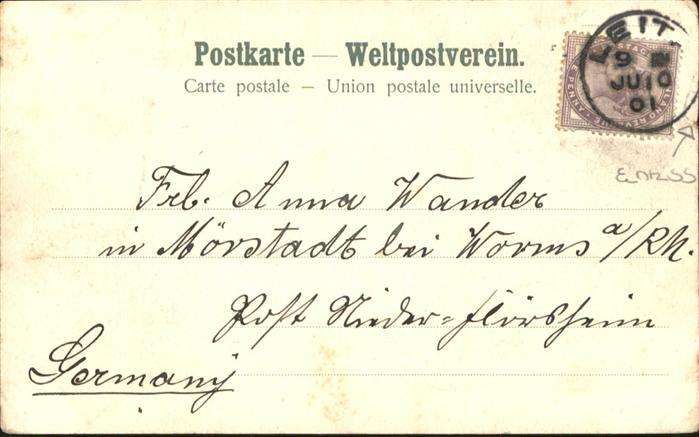 Postkarte — Weltpostverein.
Carte postale — Union postale universelle.
LEIT
9
JU 10
01
PENNY
Frl. Anna Wander
in Mörstadt bei Worms a/Rh.
Post Nieder=Flörsheim
Germany